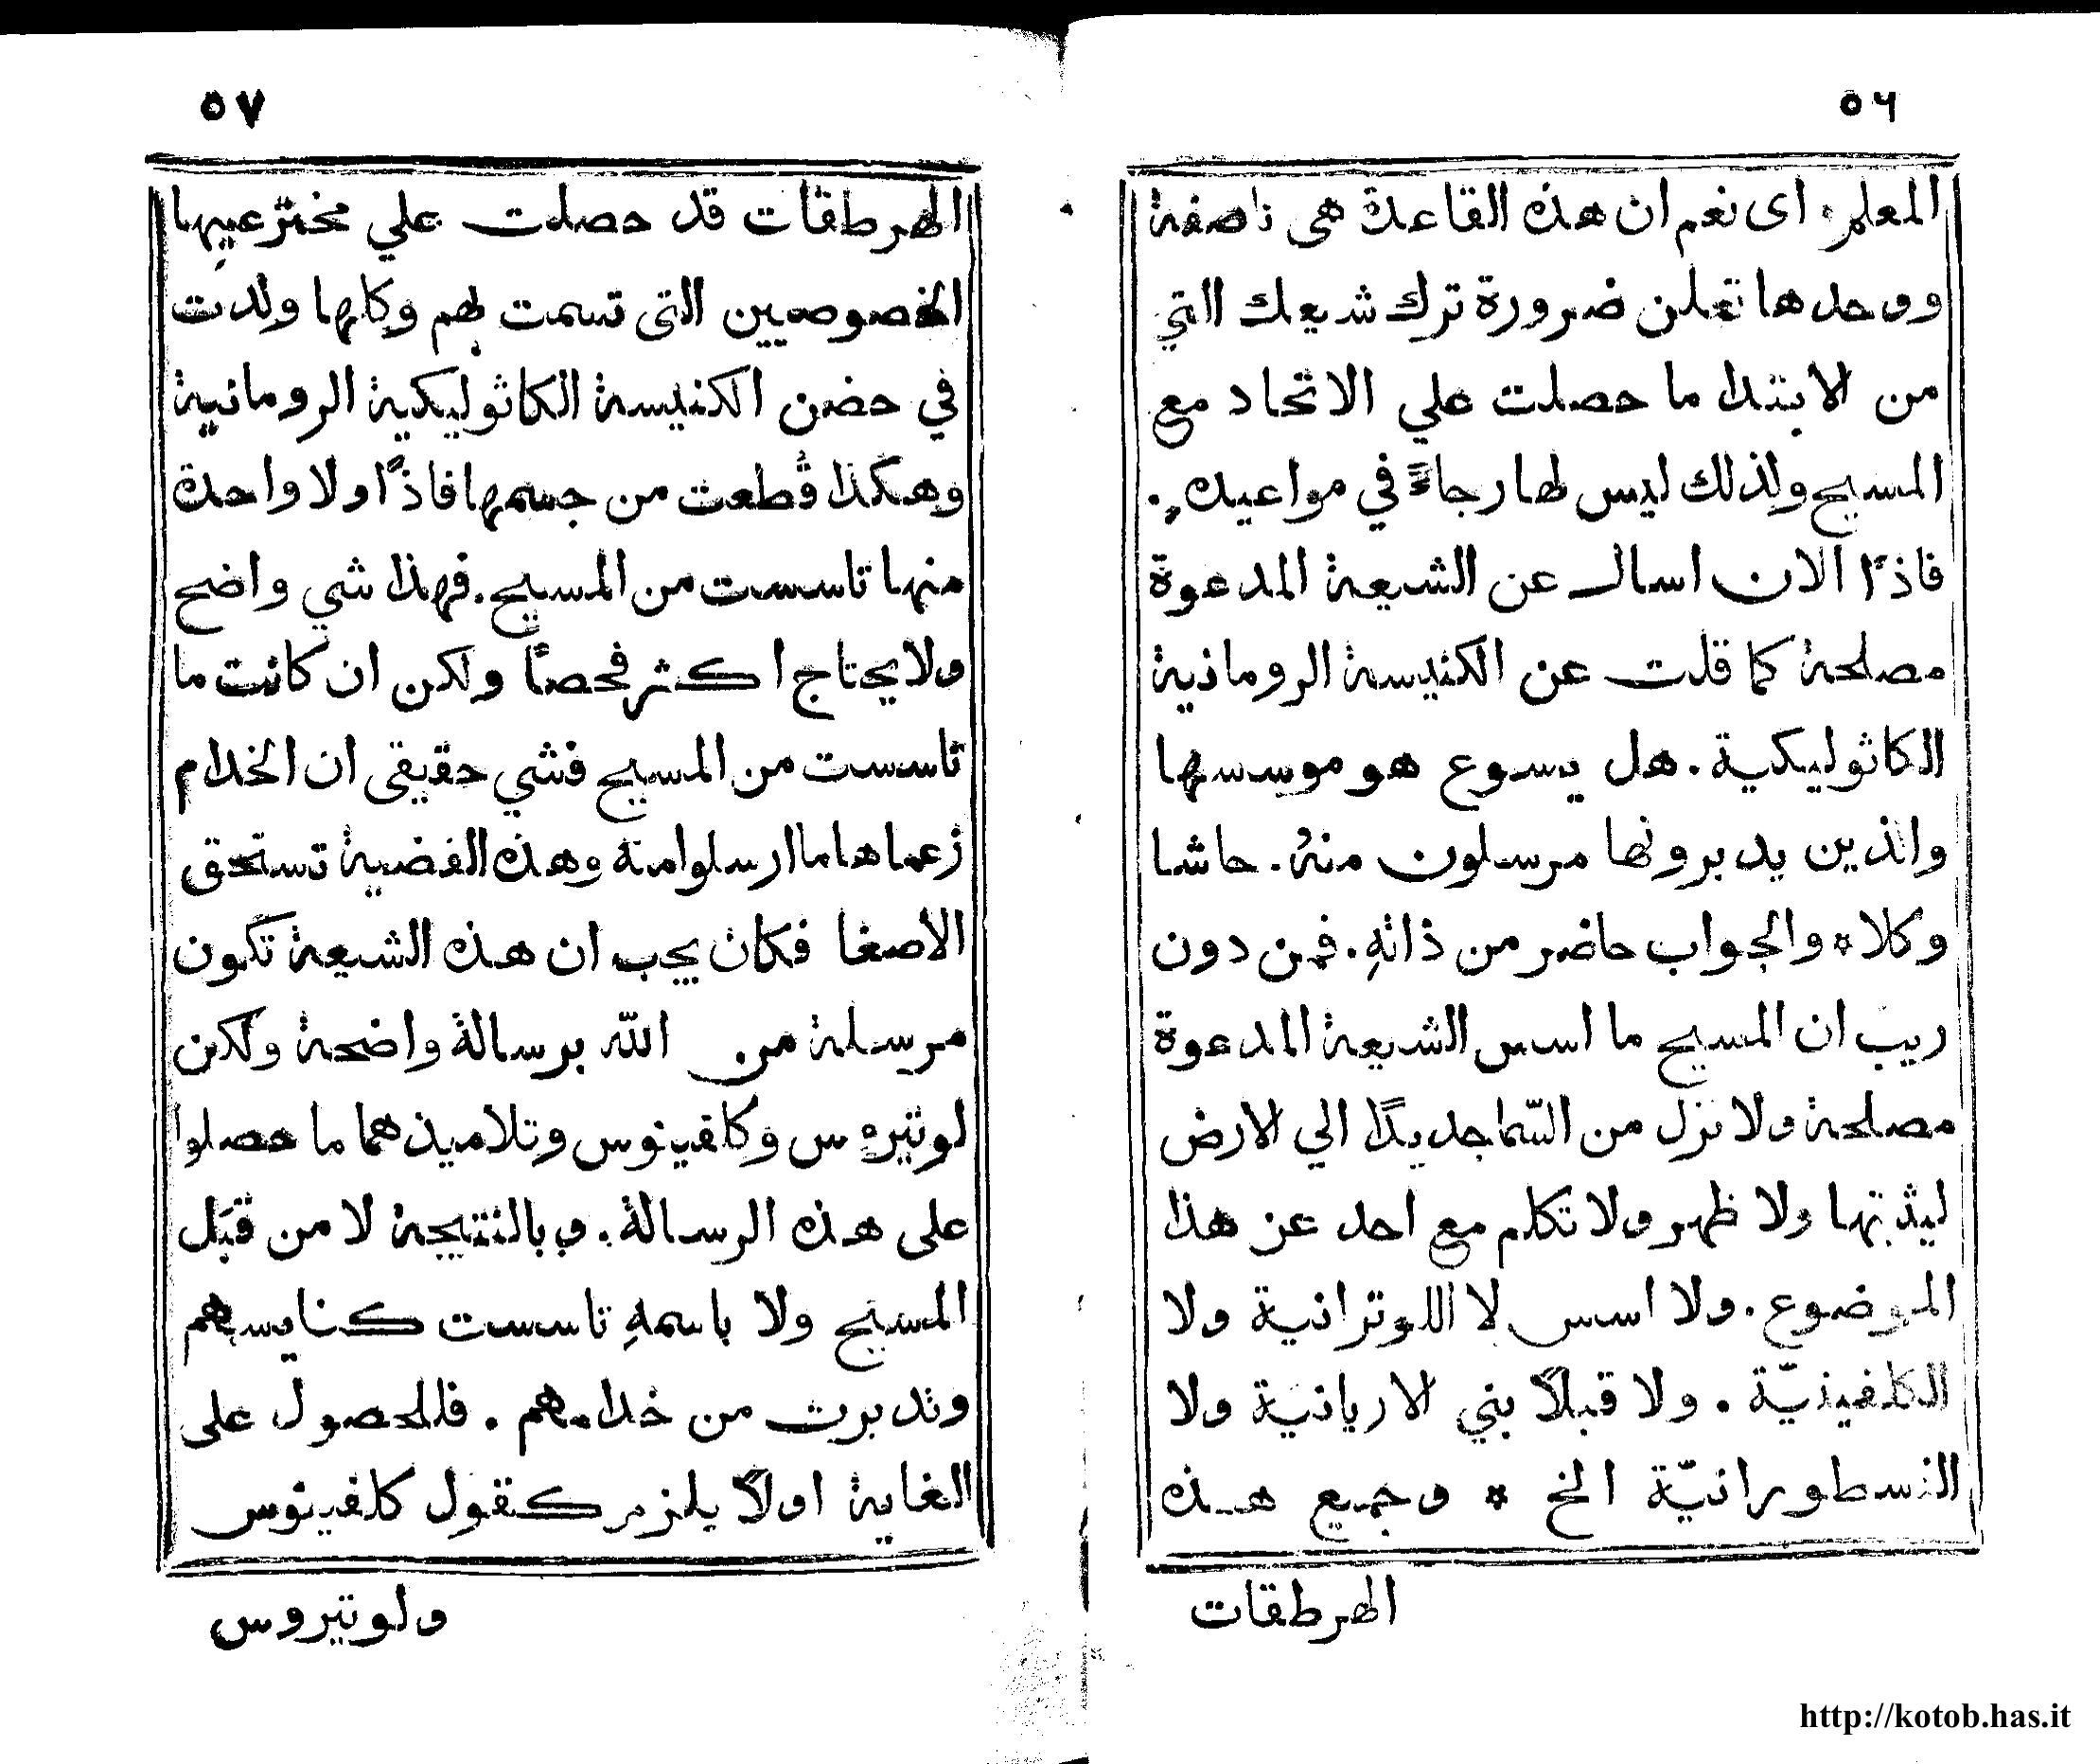 ٥٦
المعلم. اى نغم ان هذه القاعدة هى ناصفة
ووحدها تعلن ضرورة ترك شيعك التي
من الابتدا ما حصلت علي الاتحاد مع
المسيح ولذلك ليس لها رجاءً في مواعيده.
فاذًا الان اسال عن الشيعة المدعوة
مصلحة كما قلت عن الكنيسة الرومانية
الكاثوليكية. هل يسوع هو موسسها
والذين يدبرونها مرسلون منهُ. حاشا
وكلا * والجواب حاضر من ذاتهِ. فمن دون
ريب ان المسيح ما اسس الشيعة المدعوة
مصلحة ولا نزل من السّما جديدًا الي الارض
ليثبتها ولا ظهر ولا تكلم مع احد عن هذا
الموضوع. ولا اسس لا اللوترانية ولا
الكلفينيّة. ولا قبلاً بني الاريانيَة ولا
النسطورانيّة الخ * وجميع هذه
الهرطقات
٥٧
الهرطقات قد حصلت علي مخترعيها
الخصوصيين التى تسمت بهم وكلها ولدت
في حضن الكنيسة الكاثوليكية الرومانية
وهكذا قُطعت من جسمها فاذًا ولا واحدة
منها تاسست من المسيح. فهذا شي واضح
ولا يحتاج اكثر فحصاً ولكن ان كانت ما
تاسست من المسيح فشي حقيقى ان الخدام
زعماها ما ارسلوا منه وهذه القضية تستحق
الاصغا فكان يجب ان هذه الشيعة تكون
مرسلة من الله برسالة واضحة ولكن
لوتيروس وكلفينوس وتلاميذهما ما حصلوا
على هذه الرسالة. وبالنتيجة لا من قبَل
المسيح ولا باسمهِ تاسست كنايسهم
وتدبرت من خدامهم. فللحصول على
الغاية اولاً يلزم كقول كلفينوس
ولوتيروس
http://kotob.has.it